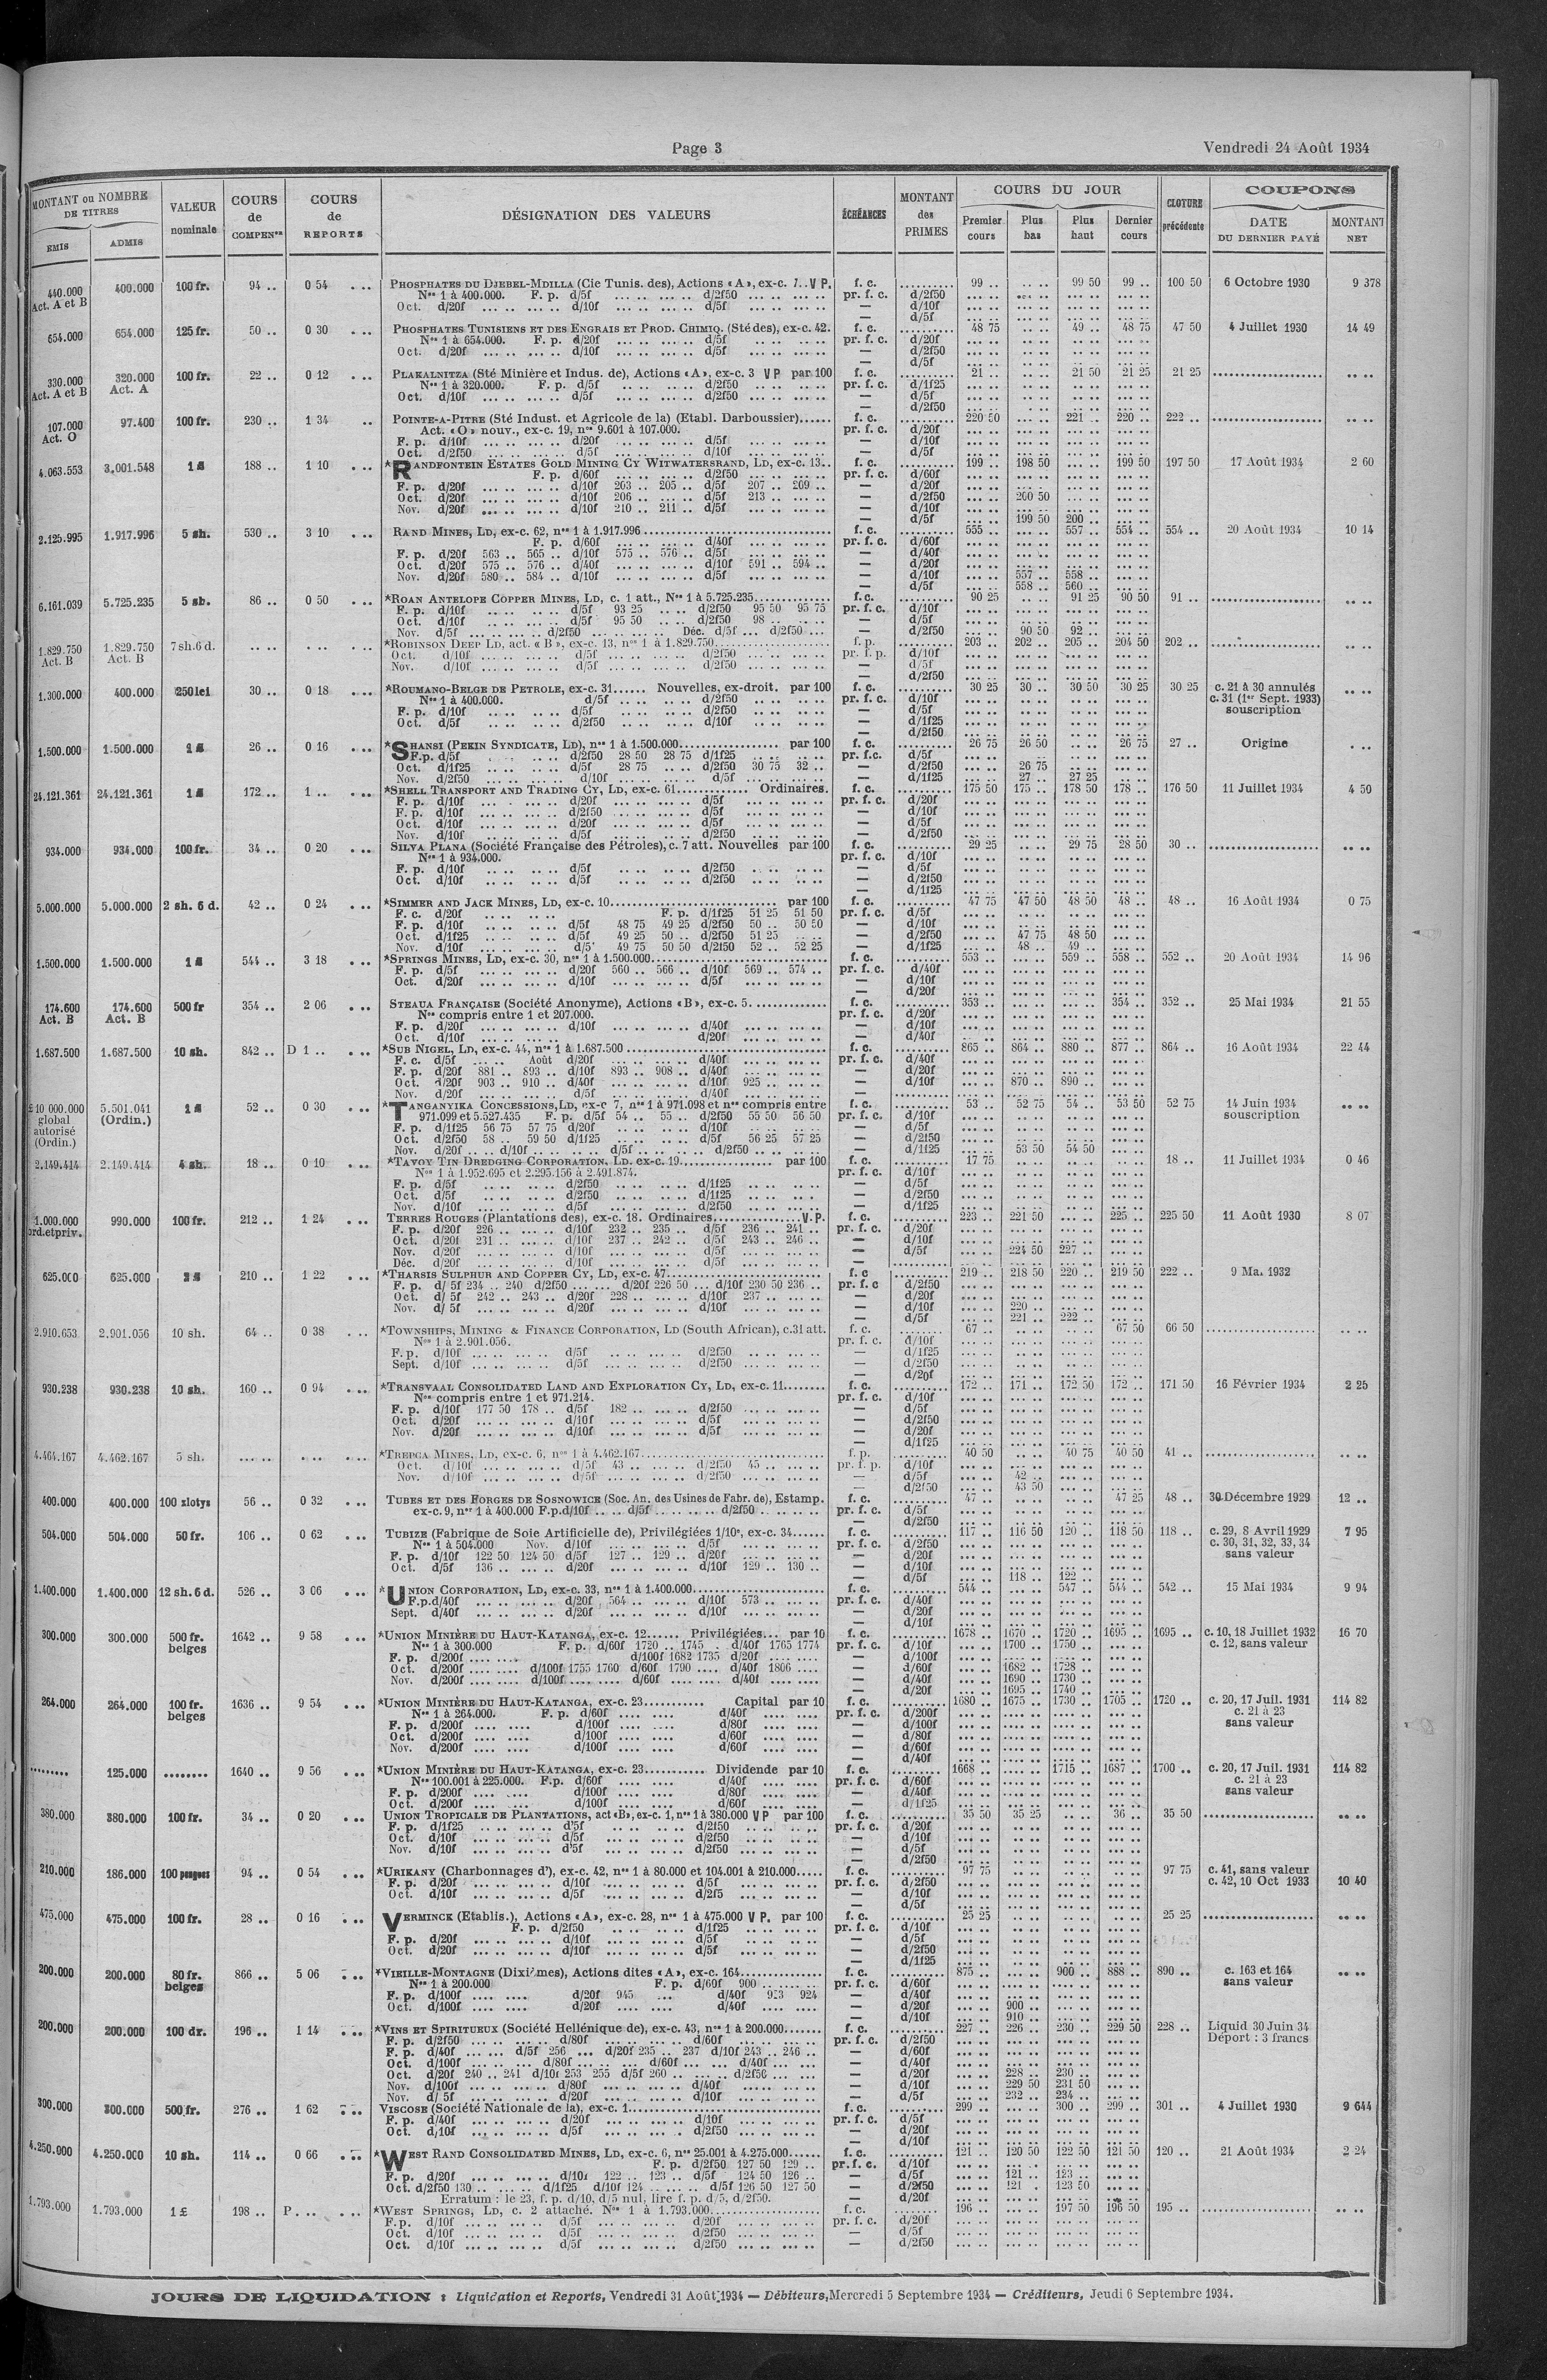 Page 3
Vendredi 24 Août 1934
MONTANT ou NOMBRE DE TITRES
EMIS
ADMIS
VALEUR nominale
COURS de COMPENon
COURS de REPORTS
DÉSIGNATION DES VALEURS
ÉCHÉANCES
MONTANT des PRIMES
COURS DU JOUR
Premier cours
Plus bas
Plus haut
Dernier cours
CLOTURE précédente
COUPONS
DATE DU DERNIER PAYÉ
MONTANT NET
440.000 Act. A et B 400.000 100 fr. 94 .. 0 54 PHOSPHATES DU DJEBEL-MDILLA (Cie Tunis. des), Actions «A», ex-c. 7..V P. f. c. 99 .. 99 50 99 .. 100 50 6 Octobre 1930 9 378
Nos 1 à 400.000. F. p. d/5f d/2f50 pr. f. c. d/2f50
Oct. d/20f d/10f d/5f — d/10f
— d/5f
654.000 654.000 125 fr. 50 .. 0 30 PHOSPHATES TUNISIENS ET DES ENGRAIS ET PROD. CHIMIQ. (Sté des), ex-c. 42. f. c. 48 75 49 .. 48 75 47 50 4 Juillet 1930 14 49
Nos 1 à 654.000. F. p. d/20f d/5f pr. f. c. d/20f
Oct. d/20f d/10f d/5f — d/2f50
— d/5f
330.000 Act. A et B 320.000 Act. A 100 fr. 22 .. 0 12 PLAKALNITZA (Sté Minière et Indus. de), Actions «A», ex-c. 3 V P par 100 f. c. 21 .. 21 50 21 25 21 25
Nos 1 à 320.000. F. p. d/5f d/2f50 pr. f. c. d/1f25
Oct. d/10f d/5f d/2f50 — d/5f
— d/2f50
107.000 Act. O 97.400 100 fr. 230 .. 1 34 POINTE-A-PITRE (Sté Indust. et Agricole de la) (Etabl. Darboussier)...... f. c. 220 50 221 .. 220 .. 222 ..
Act. «O» nouv., ex-c. 19, nos 9.601 à 107.000. pr. f. c. d/20f
F. p. d/10f d/20f d/5f — d/10f
Oct. d/2f50 d/5f d/10f — d/5f
4.063.553 3.001.548 1 £ 188 .. 1 10 *RANDFONTEIN ESTATES GOLD MINING CY WITWATERSRAND, LD, ex-c. 13.. f. c. 199 .. 198 50 199 50 197 50 17 Août 1934 2 60
F. p. d/60f d/2f50 pr. f. c. d/60f
F. p. d/20f d/10f 203 .. 205 .. d/5f 207 .. 209 .. — d/20f
Oct. d/20f d/10f 206 .. d/5f 213 .. — d/2f50 200 50
Nov. d/20f d/10f 210 .. 211 .. d/5f — d/10f
— d/5f 199 50 200 ..
2.125.995 1.917.996 5 sh. 530 .. 3 10 RAND MINES, LD, ex-c. 62, nos 1 à 1.917.996 f. c. 555 .. 557 .. 554 .. 554 .. 20 Août 1934 10 14
F. p. d/60f d/40f pr. f. c. d/60f
F. p. d/20f 563 .. 565 .. d/10f 575 .. 576 .. d/5f — d/40f
Oct. d/20f 575 .. 576 .. d/40f d/10f 591 .. 594 .. — d/20f
Nov. d/20f 580 .. 584 .. d/10f d/5f — d/10f 557 .. 558 ..
— d/5f 558 .. 560 ..
6.161.039 5.725.235 5 sh. 86 .. 0 50 *ROAN ANTELOPE COPPER MINES, LD, c. 1 att., Nos 1 à 5.725.235 f. c. 90 25 91 25 90 50 91 ..
F. p. d/10f d/5f 93 25 d/2f50 95 50 95 75 pr. f. c. d/10f
Oct. d/10f d/5f 95 50 d/2f50 98 .. — d/5f
Nov. d/5f d/2f50 Déc. d/5f d/2f50 — d/2f50 90 50 92 ..
1.829.750 Act. B 1.829.750 Act. B 7 sh.6 d. *ROBINSON DEEP LD, act. «B», ex-c. 13, nos 1 à 1.829.750 f. p. 203 .. 202 .. 205 .. 204 50 202 ..
Oct. d/10f d/5f d/2f50 pr. f. p. d/10f
Nov. d/10f d/5f d/2f50 — d/5f
— d/2f50
1.300.000 400.000 250 lei 30 .. 0 18 *ROUMANO-BELGE DE PETROLE, ex-c. 31...... Nouvelles, ex-droit. par 100 f. c. 30 25 30 .. 30 50 30 25 30 25 c. 21 à 30 annulés
Nos 1 à 400.000. d/5f d/2f50 pr. f. c. d/10f c. 31 (1er Sept. 1933)
F. p. d/10f d/5f d/2f50 — d/5f souscription
Oct. d/5f d/2f50 d/10f — d/1f25
— d/2f50
1.500.000 1.500.000 1 £ 26 .. 0 16 *SHANSI (PEKIN SYNDICATE, LD), nos 1 à 1.500.000 par 100 f. c. 26 75 26 50 26 75 27 .. Origine
F.p. d/5f d/2f50 28 50 28 75 d/1f25 pr. f.c. d/5f
Oct. d/1f25 d/5f 28 75 d/2f50 30 75 32 .. — d/2f50 26 75
Nov. d/2f50 d/10f d/5f — d/1f25 27 .. 27 25
24.121.361 24.121.361 1 £ 172 .. 1 .. *SHELL TRANSPORT AND TRADING CY, LD, ex-c. 61 Ordinaires. f. c. 175 50 175 .. 178 50 178 .. 176 50 11 Juillet 1934 4 50
F. p. d/10f d/20f d/5f pr. f. c. d/20f
F. p. d/10f d/2f50 d/5f — d/10f
Oct. d/10f d/20f d/5f — d/5f
Nov. d/10f d/5f d/2f50 — d/2f50
934.000 934.000 100 fr. 34 .. 0 20 SILVA PLANA (Société Française des Pétroles), c. 7 att. Nouvelles par 100 f. c. 29 25 29 75 28 50 30 ..
Nos 1 à 934.000. pr. f. c. d/10f
F. p. d/10f d/5f d/2f50 — d/5f
Oct. d/10f d/5f d/2f50 — d/2f50
— d/1f25
5.000.000 5.000.000 2 sh. 6 d. 42 .. 0 24 *SIMMER AND JACK MINES, LD, ex-c. 10 par 100 f. c. 47 75 47 50 48 50 48 .. 48 .. 16 Août 1934 0 75
F. c. d/20f F. p. d/1f25 51 25 51 50 pr. f. c. d/5f
F. p. d/10f d/5f 48 75 49 25 d/2f50 50 .. 50 50 — d/10f
Oct. d/1f25 d/5f 49 25 50 .. d/2f50 51 25 — d/2f50 47 75 48 50
Nov. d/10f d/5f 49 75 50 50 d/2f50 52 .. 52 25 — d/1f25 48 .. 49 ..
1.500.000 1.500.000 1 £ 544 .. 3 18 *SPRINGS MINES, LD, ex-c. 30, nos 1 à 1.500.000 f. c. 553 .. 559 .. 558 .. 552 .. 20 Août 1934 14 96
F. p. d/5f d/20f 560 .. 566 .. d/10f 569 .. 574 .. pr. f. c. d/40f
Oct. d/20f d/10f d/5f — d/10f
— d/20f
174.600 Act. B 174.600 Act. B 500 fr 354 .. 2 06 STEAUA FRANÇAISE (Société Anonyme), Actions «B», ex-c. 5. f. c. 353 .. 354 .. 352 .. 25 Mai 1934 21 55
Nos compris entre 1 et 207.000. pr. f. c. d/20f
F. p. d/20f d/10f d/40f — d/10f
Oct. d/10f d/20f — d/40f
1.687.500 1.687.500 10 sh. 842 .. D 1 .. *SUB NIGEL, LD, ex-c. 44, nos 1 à 1.687.500 f. c. 865 .. 864 .. 880 .. 877 .. 864 .. 16 Août 1934 22 44
F. c. d/5f Août d/20f d/40f pr. f. c. d/40f
F. p. d/20f 881 .. 893 .. d/10f 893 .. 908 .. d/40f — d/20f
Oct. d/20f 903 .. 910 .. d/40f d/10f 925 .. — d/10f 870 .. 890 ..
Nov. d/20f d/5f d/40f
£10 000.000 global autorisé (Ordin.) 5.501.041 (Ordin.) 1 £ 52 .. 0 30 *TANGANYIKA CONCESSIONS, LD, ex-c 7, nos 1 à 971.098 et nos compris entre f. c. 53 .. 52 75 54 .. 53 50 52 75 14 Juin 1934 souscription
971.099 et 5.527.435 F. p. d/5f 54 .. 55 .. d/2f50 55 50 56 50 pr. f. c. d/10f
F. p. d/1f25 56 75 57 75 d/20f d/10f — d/5f
Oct. d/2f50 58 .. 59 50 d/1f25 d/5f 56 25 57 25 — d/2f50
Nov. d/20f d/10f d/5f d/2f50 — d/1f25 53 50 54 50
2.149.414 2.149.414 4 sh. 18 .. 0 10 *TAVOY TIN DREDGING CORPORATION, LD, ex-c. 19 par 100 f. c. 17 75 18 .. 11 Juillet 1934 0 46
Nos 1 à 1.952.695 et 2.295.156 à 2.491.874. pr. f. c. d/10f
F. p. d/5f d/2f50 d/1f25 — d/5f
Oct. d/5f d/2f50 d/1f25 — d/2f50
Nov. d/10f d/5f d/2f50 — d/1f25
1.000.000 ord.et priv. 990.000 100 fr. 212 .. 1 24 TERRES ROUGES (Plantations des), ex-c. 18. Ordinaires V.P. f. c. 223 .. 221 50 225 .. 225 50 11 Août 1930 8 07
F. p. d/20f 226 .. d/10f 232 .. 235 .. d/5f 236 .. 241 .. pr. f. c. d/20f
Oct. d/20f 231 .. d/10f 237 .. 242 .. d/5f 243 .. 246 .. — d/10f
Nov. d/20f d/10f d/5f — d/5f 224 50 227 ..
Déc. d/20f d/10f d/5f
625.000 625.000 2 £ 210 .. 1 22 *THARSIS SULPHUR AND COPPER CY, LD, ex-c. 47 f. c 219 .. 218 50 220 .. 219 50 222 .. 9 Ma. 1932
F. p. d/ 5f 234 .. 240 d/2f50 d/20f 226 50 d/10f 230 50 236 .. pr. f. c d/2f50
Oct. d/ 5f 242 .. 243 .. d/20f 228 .. d/10f 237 .. — d/20f
Nov. d/ 5f d/20f d/10f — d/10f 220 ..
— d/5f 221 .. 222 ..
2.910.653 2.901.056 10 sh. 64 .. 0 38 *TOWNSHIPS, MINING & FINANCE CORPORATION, LD (South African), c.31 att. f. c. 67 .. 67 50 66 50
Nos 1 à 2.901.056. pr. f. c. d/10f
F. p. d/10f d/5f d/2f50 — d/1f25
Sept. d/10f d/5f d/2f50 — d/2f50
— d/20f
930.238 930.238 10 sh. 160 .. 0 94 *TRANSVAAL CONSOLIDATED LAND AND EXPLORATION CY, LD, ex-c. 11 f. c. 172 .. 171 .. 172 50 172 .. 171 50 16 Février 1934 2 25
Nos compris entre 1 et 971.214. pr. f. c. d/10f
F. p. d/10f 177 50 178 .. d/5f 182 .. d/2f50 — d/5f
Oct. d/20f d/10f d/5f — d/2f50
Nov. d/20f d/10f d/5f — d/20f
— d/1f25
4.464.167 4.462.167 5 sh. *TREPCA MINES, LD, ex-c. 6, nos 1 à 4.462.167 f. p. 40 50 40 75 40 50 41 ..
Oct. d/10f d/5f 43 .. d/2f50 45 .. pr. f. p. d/10f
Nov. d/10f d/5f d/2f50 — d/5f 42 ..
— d/2f50 43 50
400.000 400.000 100 zlotys 56 .. 0 32 TUBES ET DES FORGES DE SOSNOWICE (Soc. An. des Usines de Fabr. de), Estamp. f. c. 47 .. 47 25 48 .. 30 Décembre 1929 12 ..
ex-c. 9, nos 1 à 400.000 F.p.d/10f d/5f d/2f50 pr. f. c. d/5f
— d/2f50
504.000 504.000 50 fr. 106 .. 0 62 TUBIZE (Fabrique de Soie Artificielle de), Privilégiées 1/10e, ex-c. 34 f. c. 117 .. 116 50 120 .. 118 50 118 .. c. 29, 8 Avril 1929 7 95
Nos 1 à 504.000 Nov. d/10f d/5f pr. f. c. d/2f50 c. 30, 31, 32, 33, 34
F. p. d/10f 122 50 124 50 d/5f 127 .. 129 .. d/20f — d/20f sans valeur
Oct. d/5f 136 .. d/20f d/10f 129 .. 130 .. — d/10f
— d/5f 118 .. 122 ..
1.400.000 1.400.000 12 sh. 6 d. 526 .. 3 06 *UNION CORPORATION, LD, ex-c. 33, nos 1 à 1.400.000 f. c. 544 .. 547 .. 544 .. 542 .. 15 Mai 1934 9 94
F.p.d/40f d/20f 564 .. d/10f 573 .. pr. f. c. d/40f
Sept. d/40f d/20f d/10f — d/20f
— d/10f
300.000 300.000 500 fr. belges 1642 .. 9 58 *UNION MINIÈRE DU HAUT-KATANGA, ex-c. 12...... Privilégiées... par 10 f. c. 1678 .. 1670 .. 1720 .. 1695 .. 1695 .. c. 10, 18 Juillet 1932 16 70
Nos 1 à 300.000 F. p. d/60f 1720 .. 1745 . d/40f 1765 1774 pr. f. c. d/10f 1700 .. 1750 .. c. 12, sans valeur
F. p. d/200f d/100f 1682 1735 d/20f — d/100f
Oct. d/200f d/100f 1755 1760 d/60f 1790 d/40f 1806 — d/60f 1682 .. 1728 ..
Nov. d/200f d/100f d/60f d/40f — d/40f 1690 .. 1730 ..
— d/20f 1695 .. 1740 ..
264.000 264.000 100 fr. belges 1636 .. 9 54 *UNION MINIÈRE DU HAUT-KATANGA, ex-c. 23 Capital par 10 f. c. 1680 .. 1675 .. 1730 .. 1705 .. 1720 .. c. 20, 17 Juil. 1931 114 82
Nos 1 à 264.000. F. p. d/60f d/40f pr. f. c. d/200f c. 21 à 23
F. p. d/200f d/100f d/80f — d/100f sans valeur
Oct. d/200f d/100f d/60f — d/80f
Nov. d/200f d/100f d/60f — d/60f
— d/40f
125.000 1640 .. 9 56 *UNION MINIÈRE DU HAUT-KATANGA, ex-c. 23 Dividende par 10 f. c. 1668 .. 1715 .. 1687 .. 1700 .. c. 20, 17 Juil. 1931 114 82
Nos 100.001 à 225.000. F.p. d/60f d/40f pr. f. c. d/60f c. 21 à 23
F. p. d/200f d/100f d/80f — d/40f sans valeur
Oct. d/200f d/100f d/60f — d/1f25
380.000 380.000 100 fr. 34 .. 0 20 UNION TROPICALE DE PLANTATIONS, act «B», ex-c. 1, nos 1 à 380.000 V P par 100 f. c. 35 50 35 25 36 .. 35 50
F. p. d/1f25 d/5f d/2f50 pr. f. c. d/20f
Oct. d/10f d/5f d/2f50 — d/10f
Nov. d/10f d/5f d/2f50 — d/5f
— d/2f50
210.000 186.000 100 pengoes 94 .. 0 54 *URIKANY (Charbonnages d'), ex-c. 42, nos 1 à 80.000 et 104.001 à 210.000 f. c. 97 75 97 75 c. 41, sans valeur
F. p. d/20f d/10f d/5f pr. f. c. d/2f50 c. 42, 10 Oct 1933 10 40
Oct. d/10f d/5f d/2f5 — d/10f
— d/5f
475.000 475.000 100 fr. 28 .. 0 16 VERMINCK (Etablis.), Actions «A», ex-c. 28, nos 1 à 475.000 V P. par 100 f. c. 25 25 25 25
F. p. d/2f50 d/1f25 pr. f. c. d/10f
F. p. d/20f d/10f d/5f — d/5f
Oct. d/20f d/10f d/5f — d/2f50
— d/1f25
200.000 200.000 80 fr. belges 866 .. 5 06 *VIEILLE-MONTAGNE (Dixièmes), Actions dites «A», ex-c. 164 f. c. 875 .. 900 .. 888 .. 890 .. c. 163 et 164
Nos 1 à 200.000 F. p. d/60f 900 pr. f. c. d/60f sans valeur
F. p. d/100f d/20f 945 d/40f 923 924 — d/40f
Oct. d/100f d/20f d/40f — d/20f 900 ..
— d/10f 910 ..
200.000 200.000 100 dr. 196 .. 1 14 *VINS ET SPIRITUEUX (Société Hellénique de), ex-c. 43, nos 1 à 200.000 f. c. 227 .. 226 .. 230 .. 229 50 228 .. Liquid 30 Juin 34
F. p. d/2f50 d/80f d/60f pr. f. c. d/2f50 Déport : 3 francs
F. p. d/40f d/5f 256 d/20f 235 .. 237 d/10f 243 .. 246 .. — d/60f
Oct. d/100f d/80f d/60f d/40f — d/40f
Oct. d/20f 240 .. 241 d/10f 253 255 d/5f 260 .. d/2f50 — d/20f 228 .. 230 ..
Nov. d/100f d/80f d/40f — d/10f 229 50 231 50
Nov. d/ 5f d/20f d/10f — d/5f 232 .. 234 ..
300.000 300.000 500 fr. 276 .. 1 62 VISCOSE (Société Nationale de la), ex-c. 1 f. c. 299 .. 300 .. 299 .. 301 .. 4 Juillet 1930 9 644
F. p. d/40f d/20f d/10f pr. f. c. d/5f
Oct. d/10f d/5f d/2f50 — d/20f
— d/10f
4.250.000 4.250.000 10 sh. 114 .. 0 66 *WEST RAND CONSOLIDATED MINES, LD, ex-c. 6, nos 25.001 à 4.275.000 f. c. 121 .. 120 50 122 50 121 50 120 .. 21 Août 1934 2 24
F. p. d/2f50 127 50 129 .. pr. f. c. d/10f
F. p. d/20f d/10f 122 .. 123 .. d/5f 124 50 126 .. — d/5f 121 .. 123 ..
Oct. d/2f50 130 .. d/1f25 d/10f 124 .. d/5f 126 50 127 50 — d/2f50 121 . 123 50
Erratum : le 23, f. p. d/10, d/5 nul, lire f. p. d/5, d/2f50. — d/20f
1.793.000 1.793.000 1 £ 198 .. P. *WEST SPRINGS, LD, c. 2 attaché. Nos 1 à 1.793.000 f. c. 196 .. 197 50 196 50 195 ..
F. p. d/10f d/5f d/20f pr. f. c. d/20f
Oct. d/10f d/5f d/2f50 — d/5f
Oct. d/10f d/5f d/2f50 — d/2f50
JOURS DE LIQUIDATION : Liquidation et Reports, Vendredi 31 Août 1934 — Débiteurs, Mercredi 5 Septembre 1934 — Créditeurs, Jeudi 6 Septembre 1934.